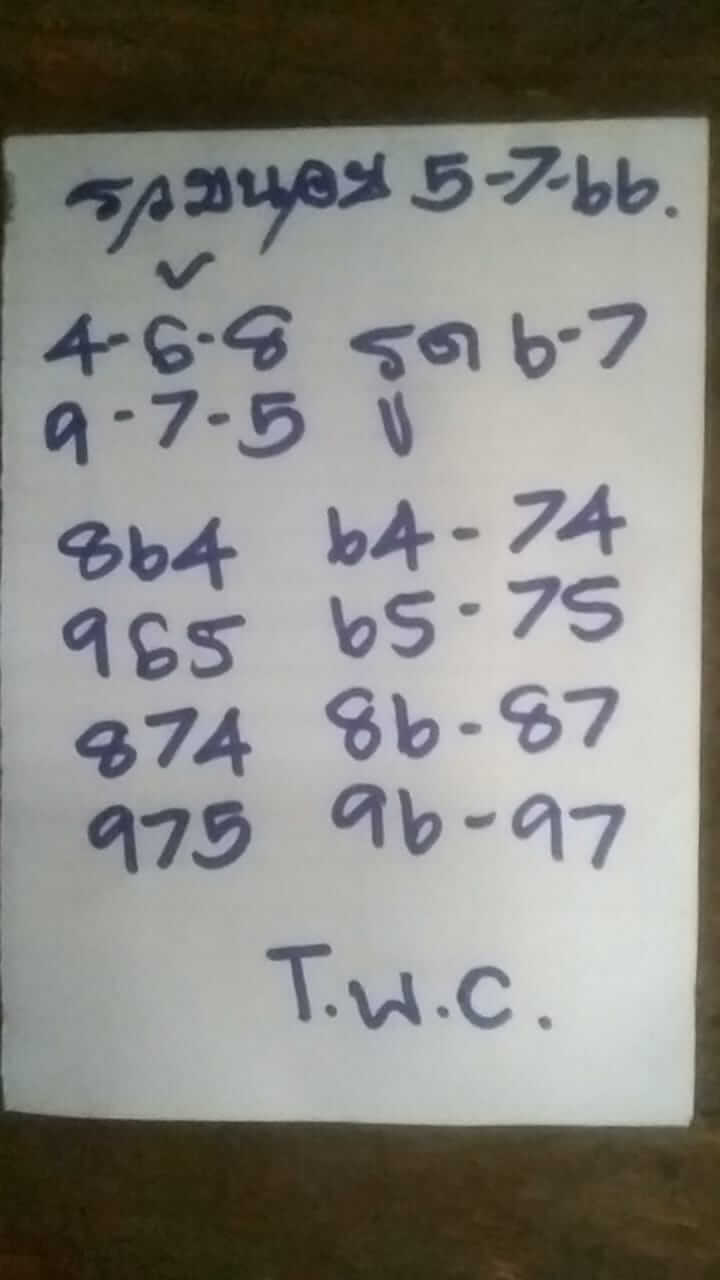 5-7-66.
✓
4-6-8 รูด 6-7
9-7-5
864 64-74
965 65-75
874 86-87
975 96-97
T.W.C.